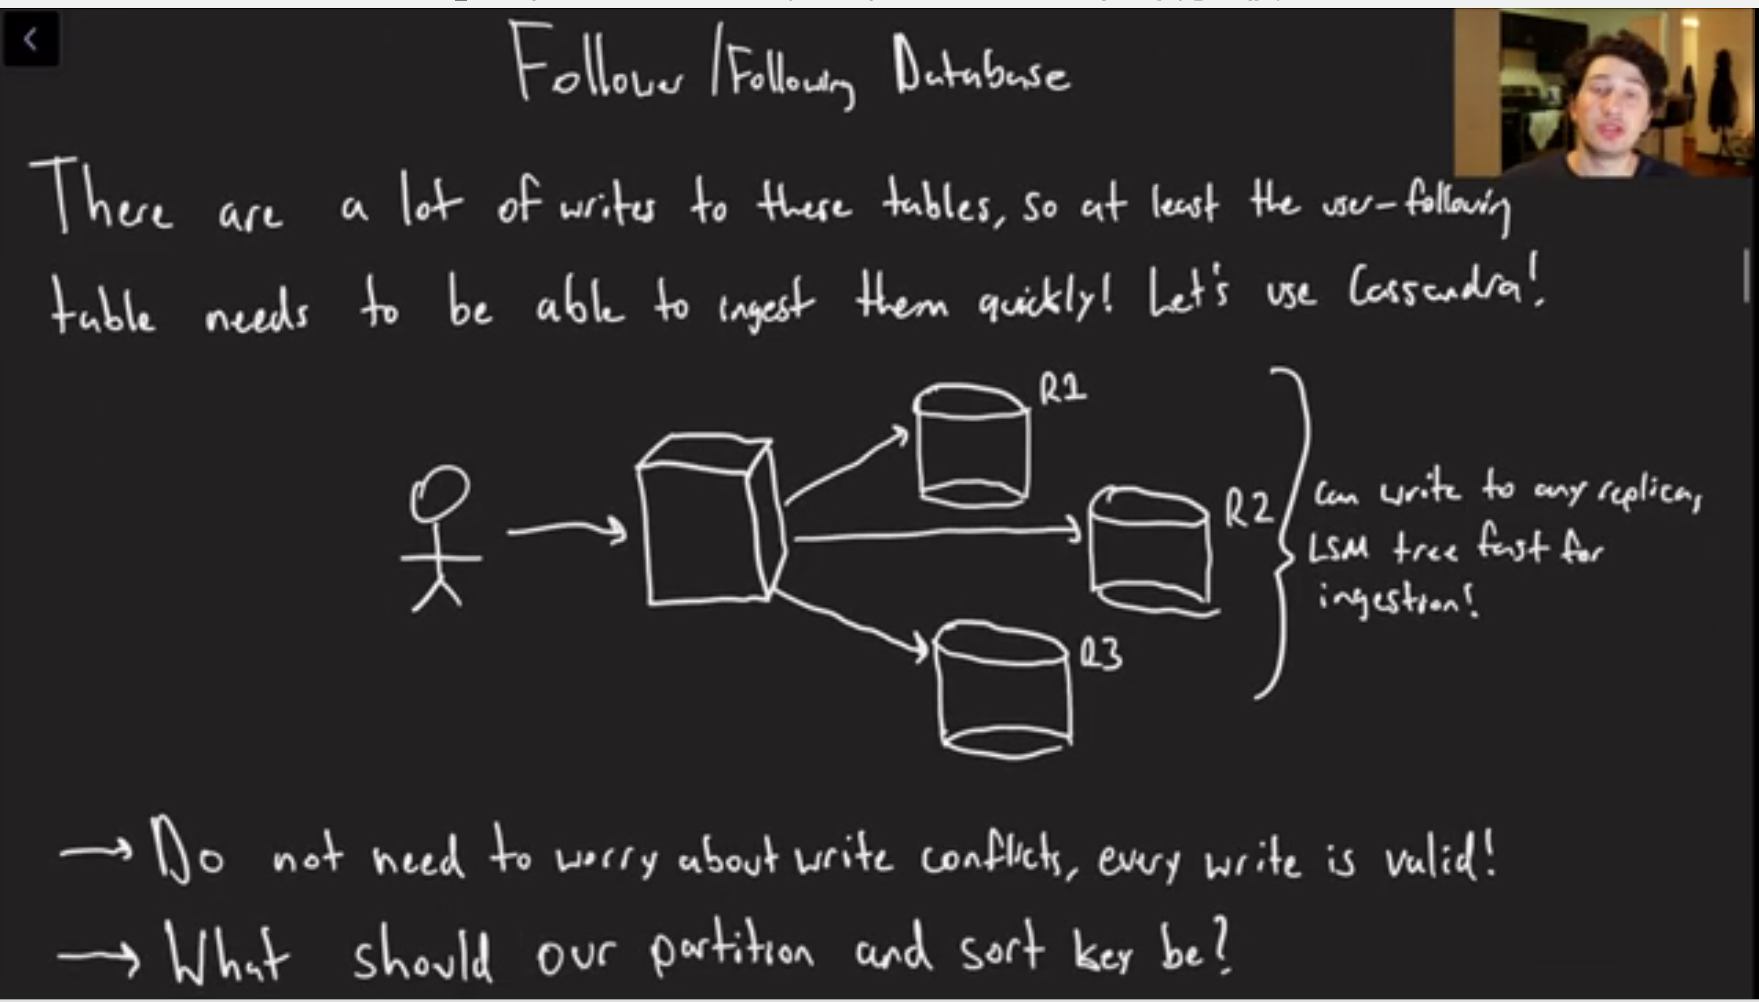 Follower / Following Database
There are a lot of writes to these tables, so at least the user-following
table needs to be able to ingest them quickly! Let's use Cassandra!
R1
R2
R3
Can write to any replica,
LSM tree fast for
ingestion!
→ Do not need to worry about write conflicts, every write is valid!
→ What should our partition and sort key be?